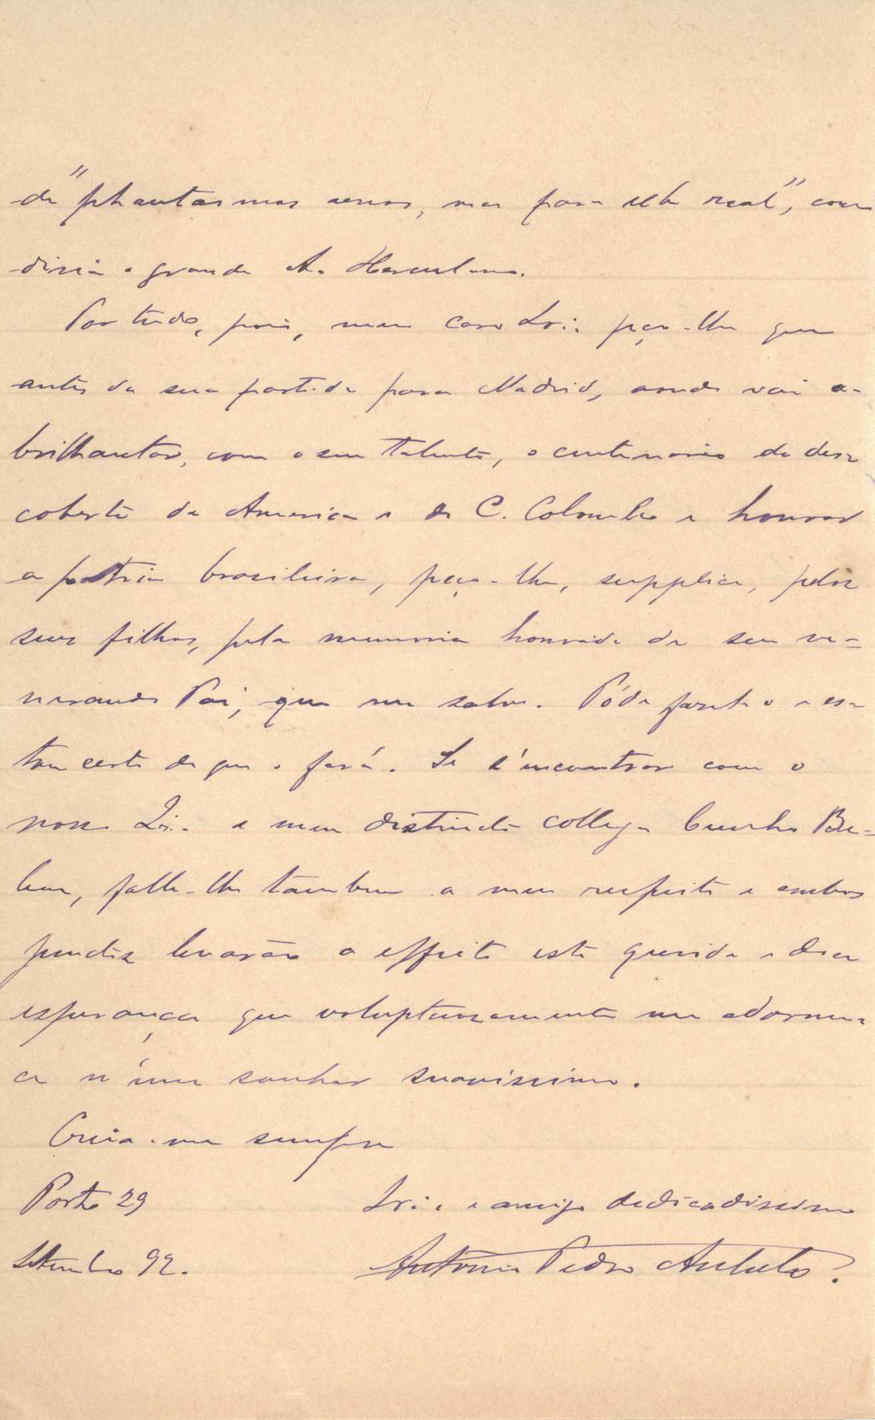 de "phantasmas                real", como
dizia o grande A. Herculano.
Por tudo, pois, meu caro         peço-lhe que
antes da sua partida para Madrid, aonde vai a-
brilhantar, com o seu talento, o centenario da des-
coberta da America e de C. Colombo e honrar
a patria brasileira, peço-lhe, supplico, pelos
seus filhos, pela memoria honrada de seu ve-
nerando Pai, que me salve. Póde fazel-o e es-
tou certo de que o fará. Se s'encontrar com o
nosso         e meu distincto collega Cunha Be-
lem, falle-lhe tambem a meu respeito e ambos
junctos levarão a effeito esta querida e doce
esperança que voluptuosamente me adorme-
ce n'um sonhar suavissimo.
Creia-me sempre
Porto 29
Setembro 92.
        e amigo dedicadissimo
Antonio Pedro